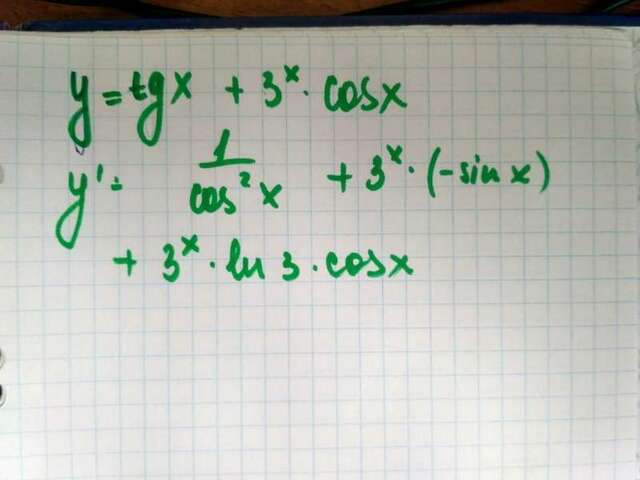 y = tgx + 3^x · cosx
y' = 1/cos²x + 3^x · (-sin x)
+ 3^x · ln 3 · cosx